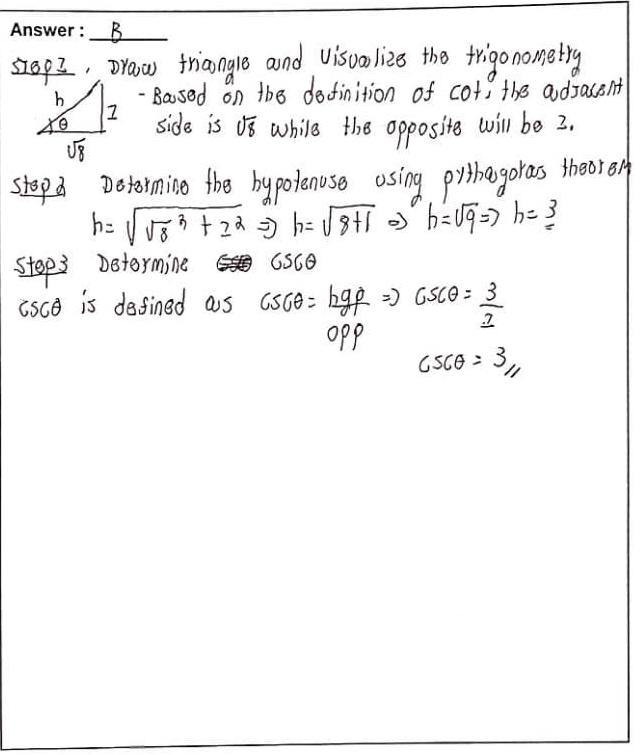 Answer : B
Step 1, Draw triangle and Visualize the trigonometry
h
1
θ
√8
- Based on the definition of cot, the adjacent
side is √8 while the opposite will be 1.
Step 2 Determine the hypotenuse using pythagoras theorem
h= √(√8² + 1²) => h= √8+1 => h=√9 => h= 3
Step 3 Determine cscθ
cscθ is defined as cscθ = hyp/opp => cscθ = 3/1
cscθ = 3//